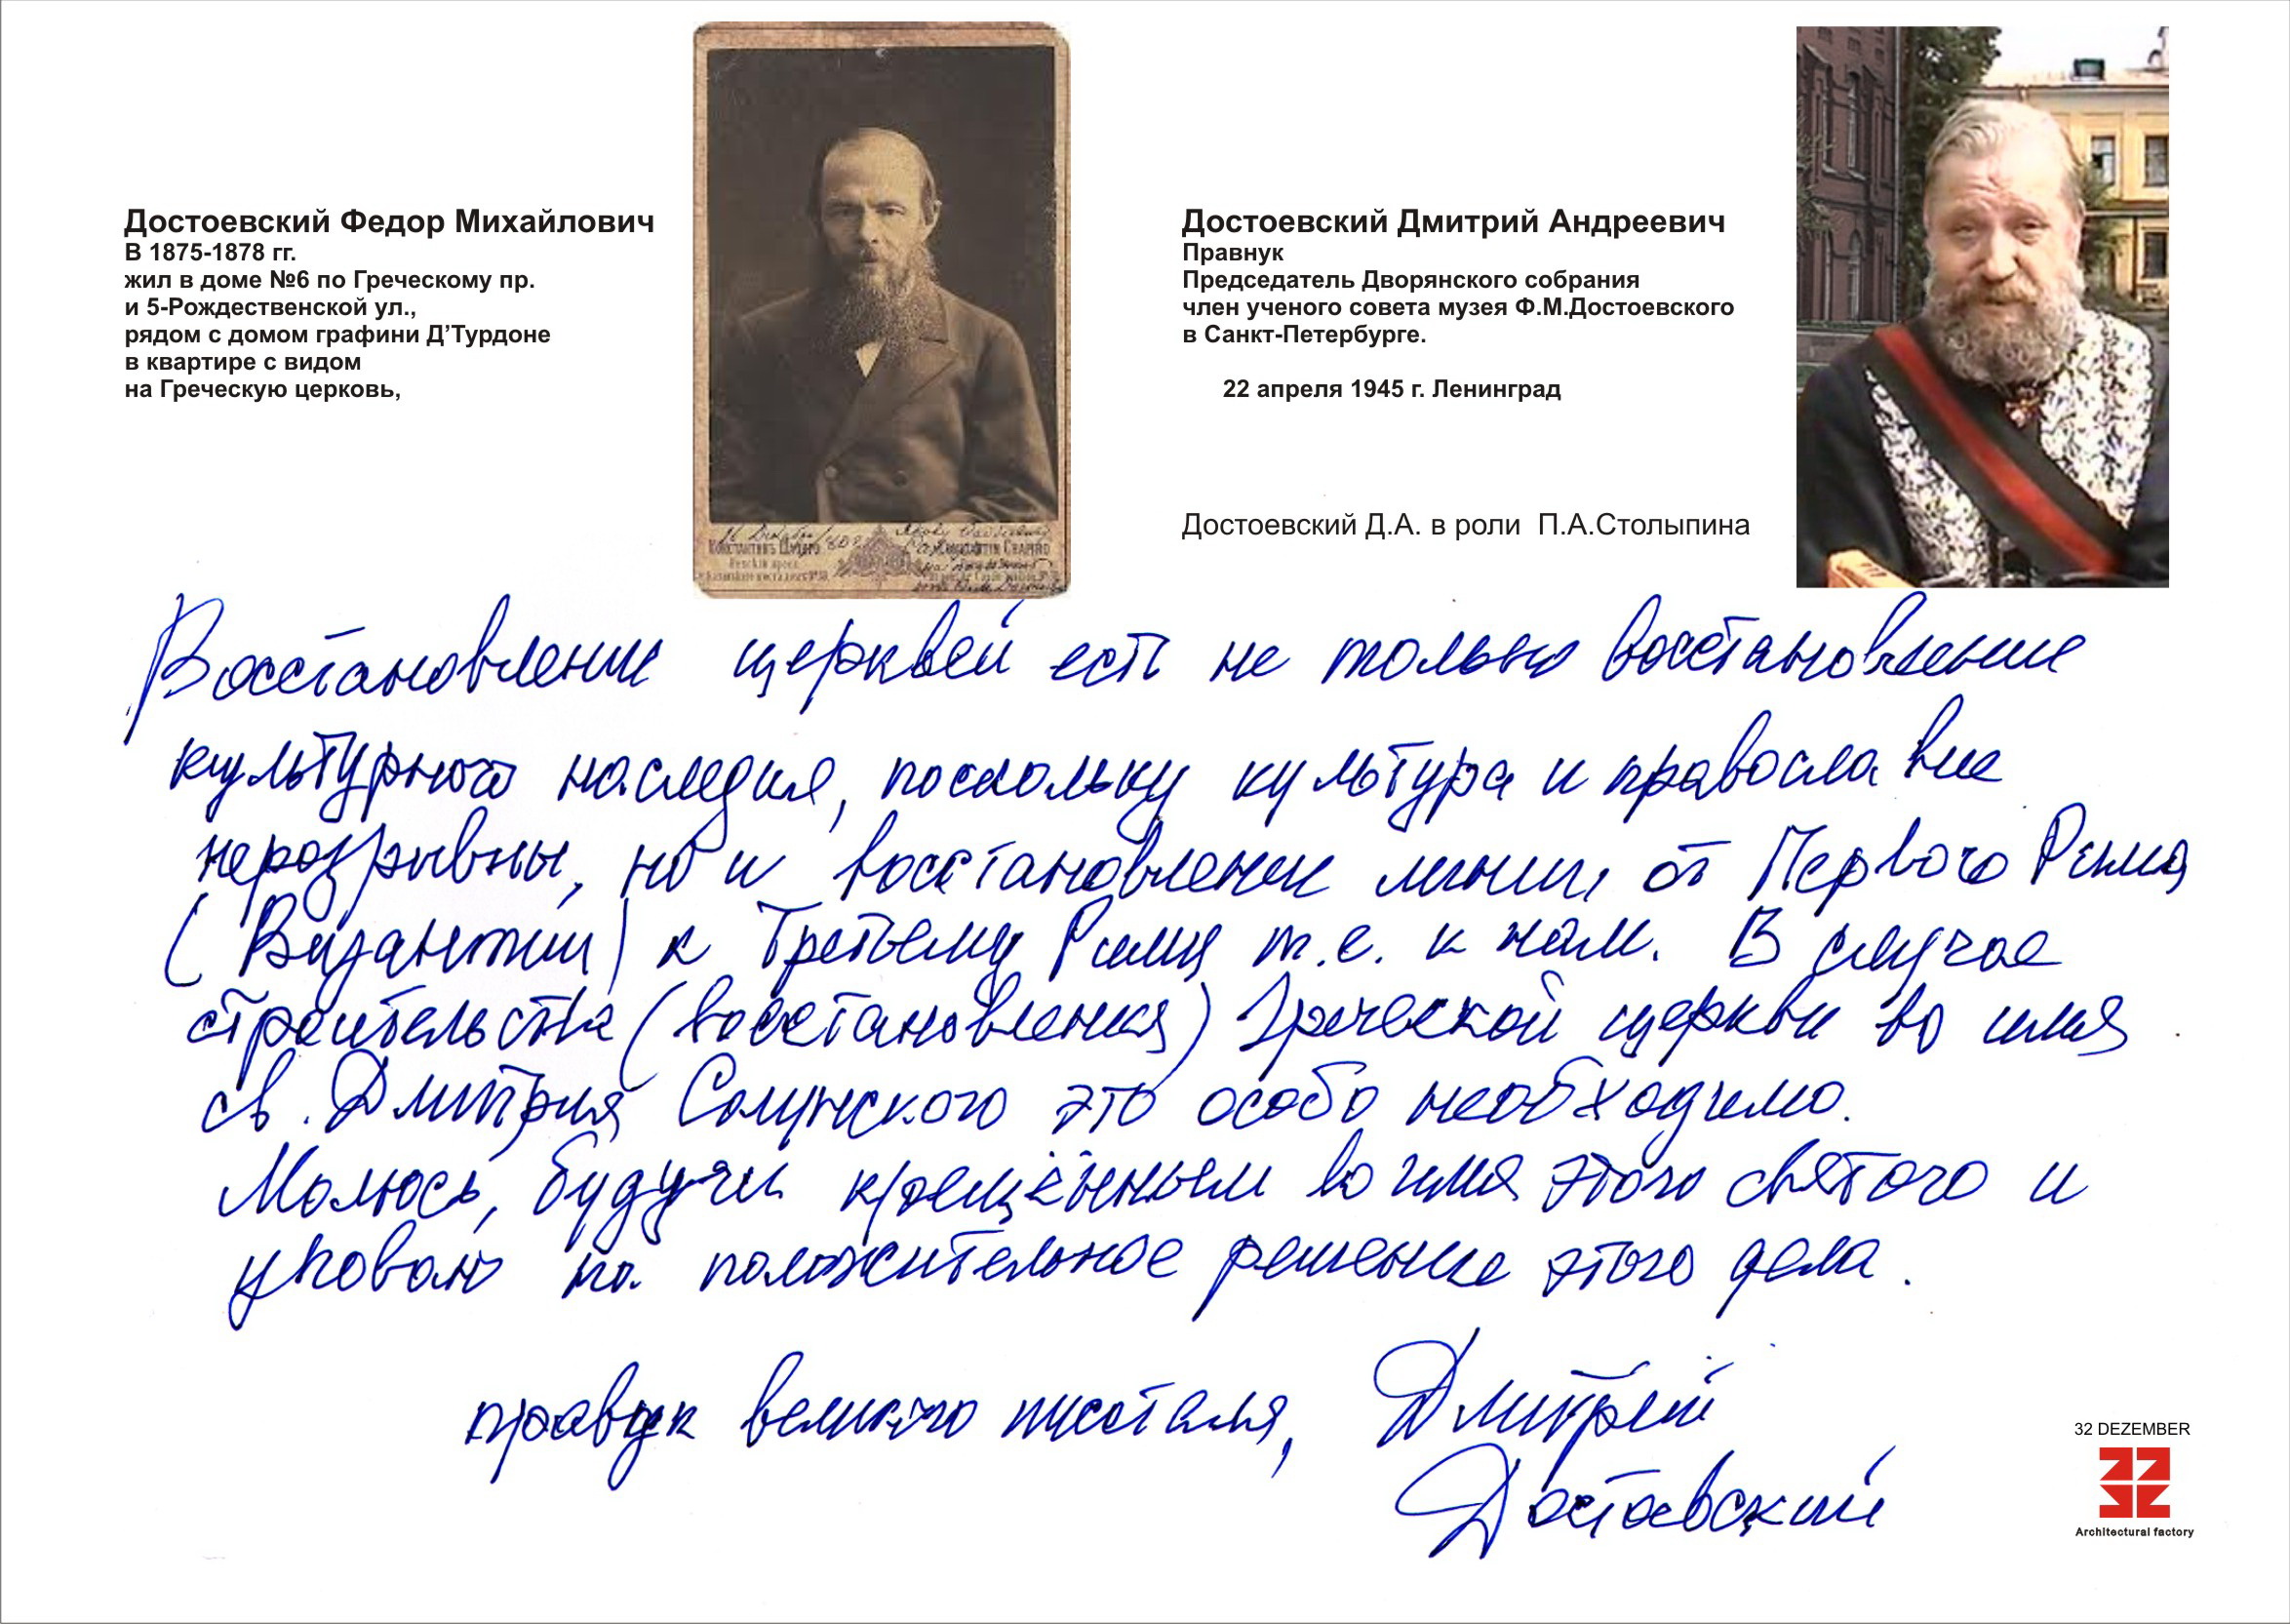 Достоевский Федор Михайлович
В 1875-1878 гг.
жил в доме №6 по Греческому пр.
и 5-Рождественской ул.,
рядом с домом графини Д’Турдоне
в квартире с видом
на Греческую церковь,
Достоевский Дмитрий Андреевич
Правнук
Председатель Дворянского собрания
член ученого совета музея Ф.М.Достоевского
в Санкт-Петербурге.
22 апреля 1945 г. Ленинград
Достоевский Д.А. в роли П.А.Столыпина
Восстановление церквей есть не только восстановление
культурного наследия, поскольку культура и православие
неразрывны, но и восстановление линии от Первого Рима
(Византии) к Третьему Риму т.е. к нам. В случае
строительства (восстановления) Греческой церкви во имя
св. Дмитрия Солунского это особо необходимо.
Молюсь, будучи крещённым во имя этого святого и
уповаю на положительное решение этого дела.
правнук великого писателя, Дмитрий
Достоевский
32 DEZEMBER
Architectural factory